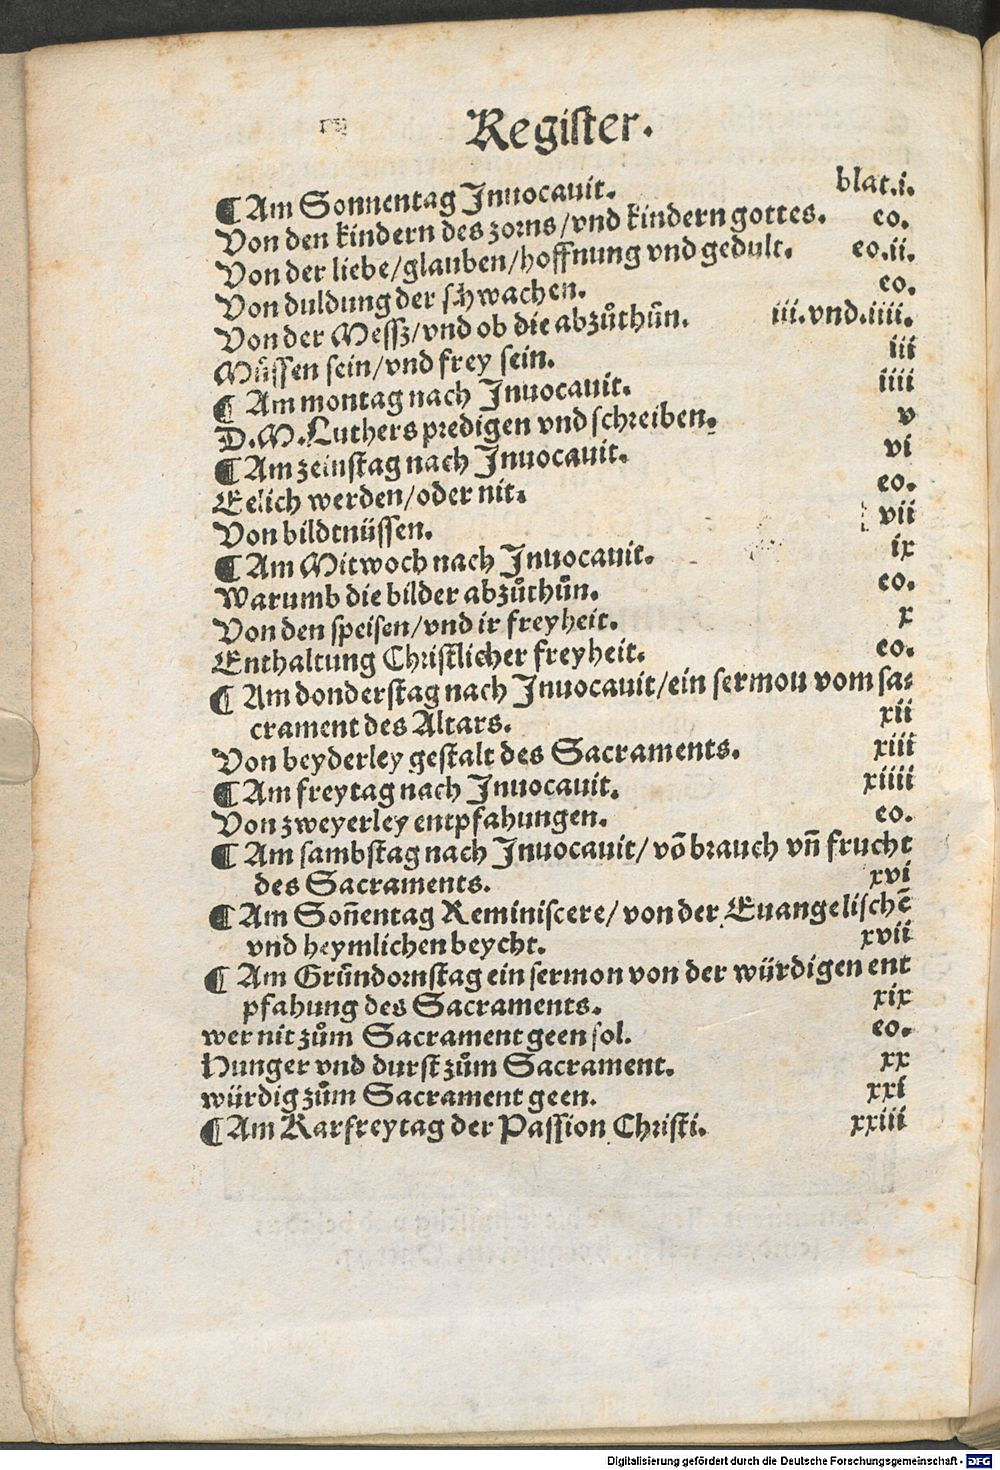 Register.
¶ Am Sonnentag Inuocauit. blat.i.
Von den kindern des zorns/vnd kindern gottes. eo.
Von der liebe/glauben/hoffnung vnd gedult. eo.ii.
Von duldung der schwachen. eo.
Von der Messz/vnd ob die abzůthůn. iii.vnd.iiii.
Müssen sein/vnd frey sein. iii
¶ Am montag nach Inuocauit. iiii
D.M.Luthers predigen vnd schreiben. v
¶ Am zeinstag nach Inuocauit. vi
Eelich werden/oder nit. eo.
Von bildtnüssen. vii
¶ Am Mitwoch nach Inuocauit. ix
Warumb die bilder abzůthůn. eo.
Von den speisen/vnd ir freyheit. x
Enthaltung Christlicher freyheit. eo.
¶ Am donderstag nach Inuocauit/ein sermon vom sa⸗
crament des Altars. xii
Von beyderley gestalt des Sacraments. xiii
¶ Am freytag nach Inuocauit. xiiii
Von zweyerley entpfahungen. eo.
¶ Am sambstag nach Inuocauit/ võ brauch vñ frucht
des Sacraments. xvi
¶ Am Soñentag Reminiscere/ von der Euangelischẽ
vnd heymlichen beycht. xvii
¶ Am Gründornstag ein sermon von der würdigen ent
pfahung des Sacraments. xix
wer nit zům Sacrament geen sol. eo.
Hunger vnd durst zům Sacrament. xx
würdig zům Sacrament geen. xxi
¶ Am Karfreytag der Passion Christi. xxiii
Digitalisierung gefördert durch die Deutsche Forschungsgemeinschaft - DFG